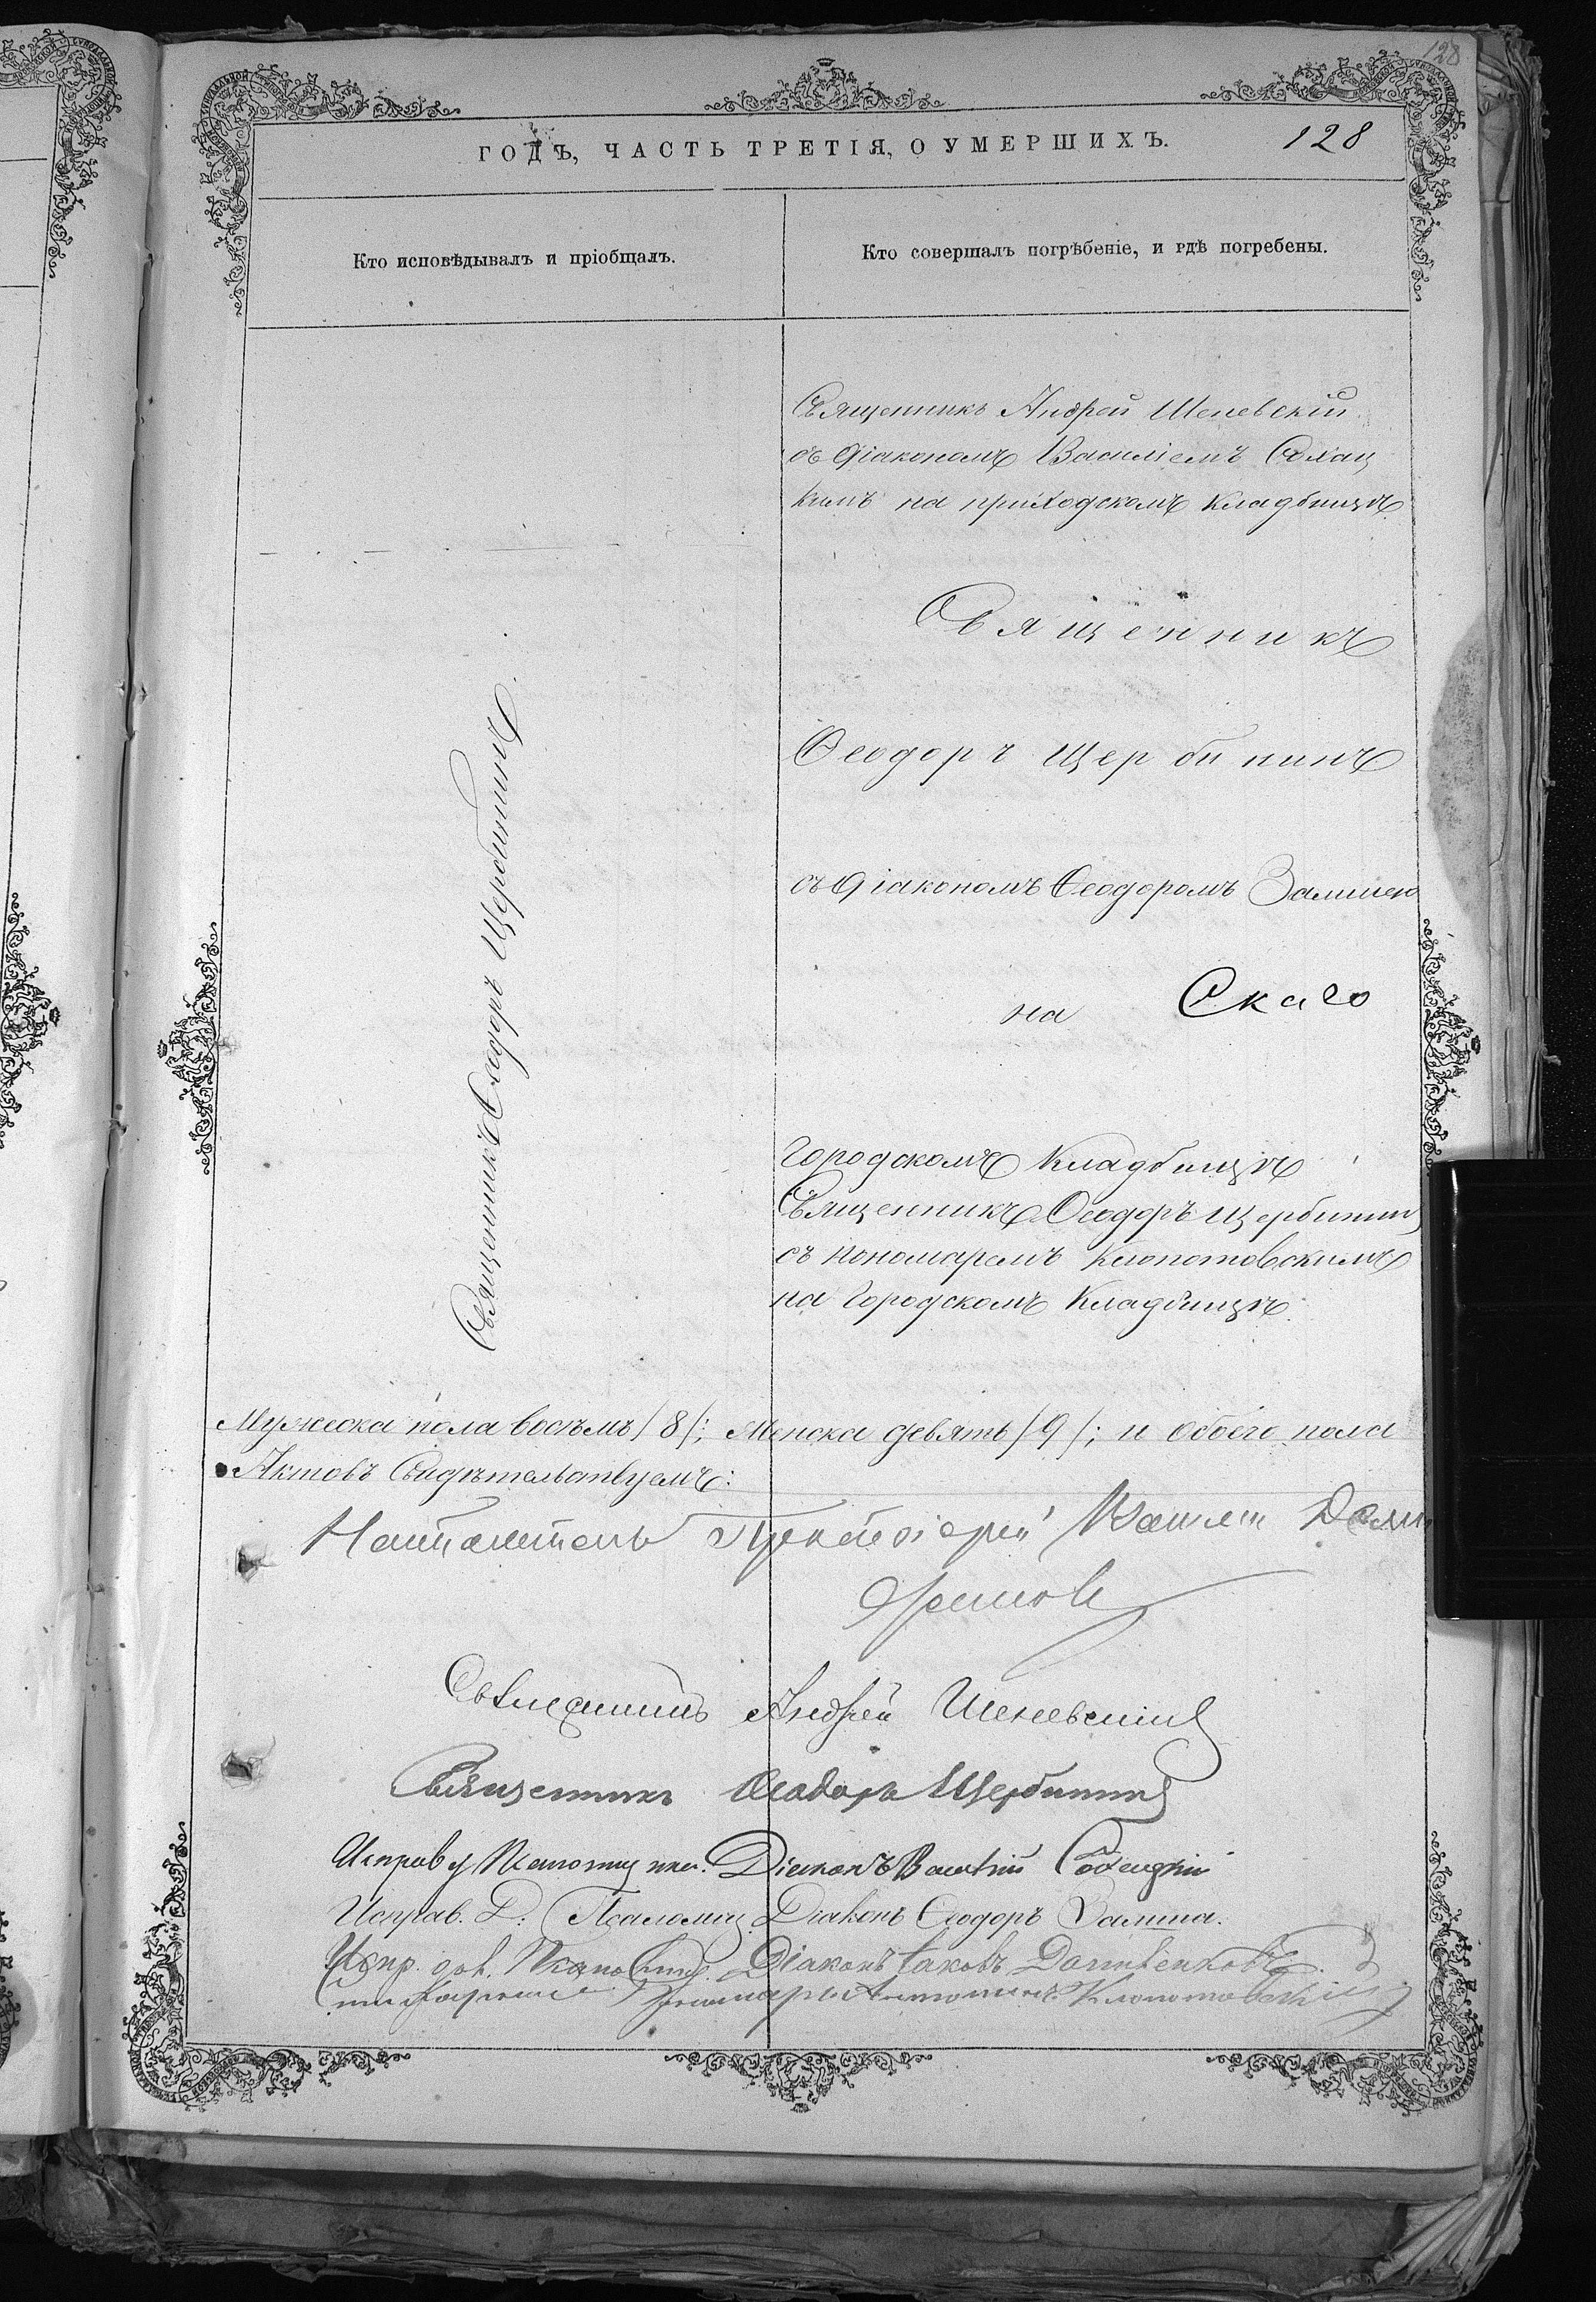 128
ГОДЪ, ЧАСТЬ ТРЕТІЯ, О УМЕРШИХЪ.
128
Кто исповѣдывалъ и пріобщалъ.
Кто совершалъ погрѣбеніе, и гдѣ погребены.
Священникъ Андрей Шеневскій
съ Діакономъ Василіемъ Сохац
кимъ на приходскомъ кладбищѣ
Священникъ
Ѳеодоръ Щербининъ
съ Діакономъ Ѳеодоромъ Залшен
скаго
на
Городскомъ Кладбищѣ
Священникъ Ѳеодоръ Щербининъ
съ пономаремъ Клопотовскимъ
на Городскомъ Кладбищѣ
Священникъ Ѳеодоръ Щербининъ.
Мужеска пола восѣмь /8/; Женска девять /9/; и обоего пола
Актовъ Свидѣтельствуемъ:
Настоятель Протоіерей
Священникъ Андрей Шеневскій
Священникъ Ѳеодоръ Щербининъ
Исправ. Псаломщ. Діаконъ Василій
Исправ. Д. Псаломщ. Діаконъ Ѳеодоръ
Испр. дол. Діаконъ Іаковъ
Пономарь Антонинъ Клопотовскій